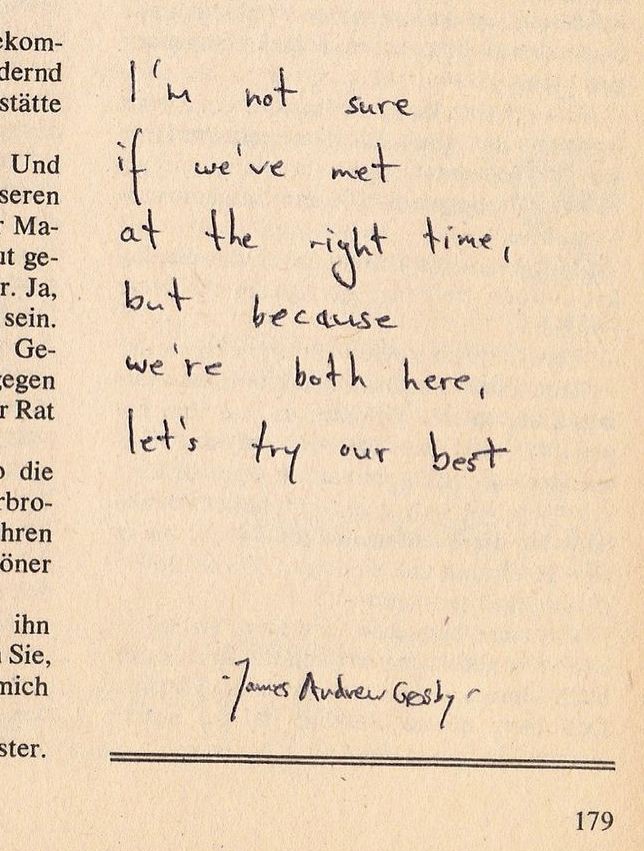 ekom-
dernd
stätte
Und
seren
r Ma-
ut ge-
r. Ja,
sein.
Ge-
gegen
r Rat
die
rbro-
hren
öner
ihn
Sie,
mich
ster.
I'm not sure
if we've met
at the right time,
but because
we're both here,
let's try our best
-James Andrew Crosby
179